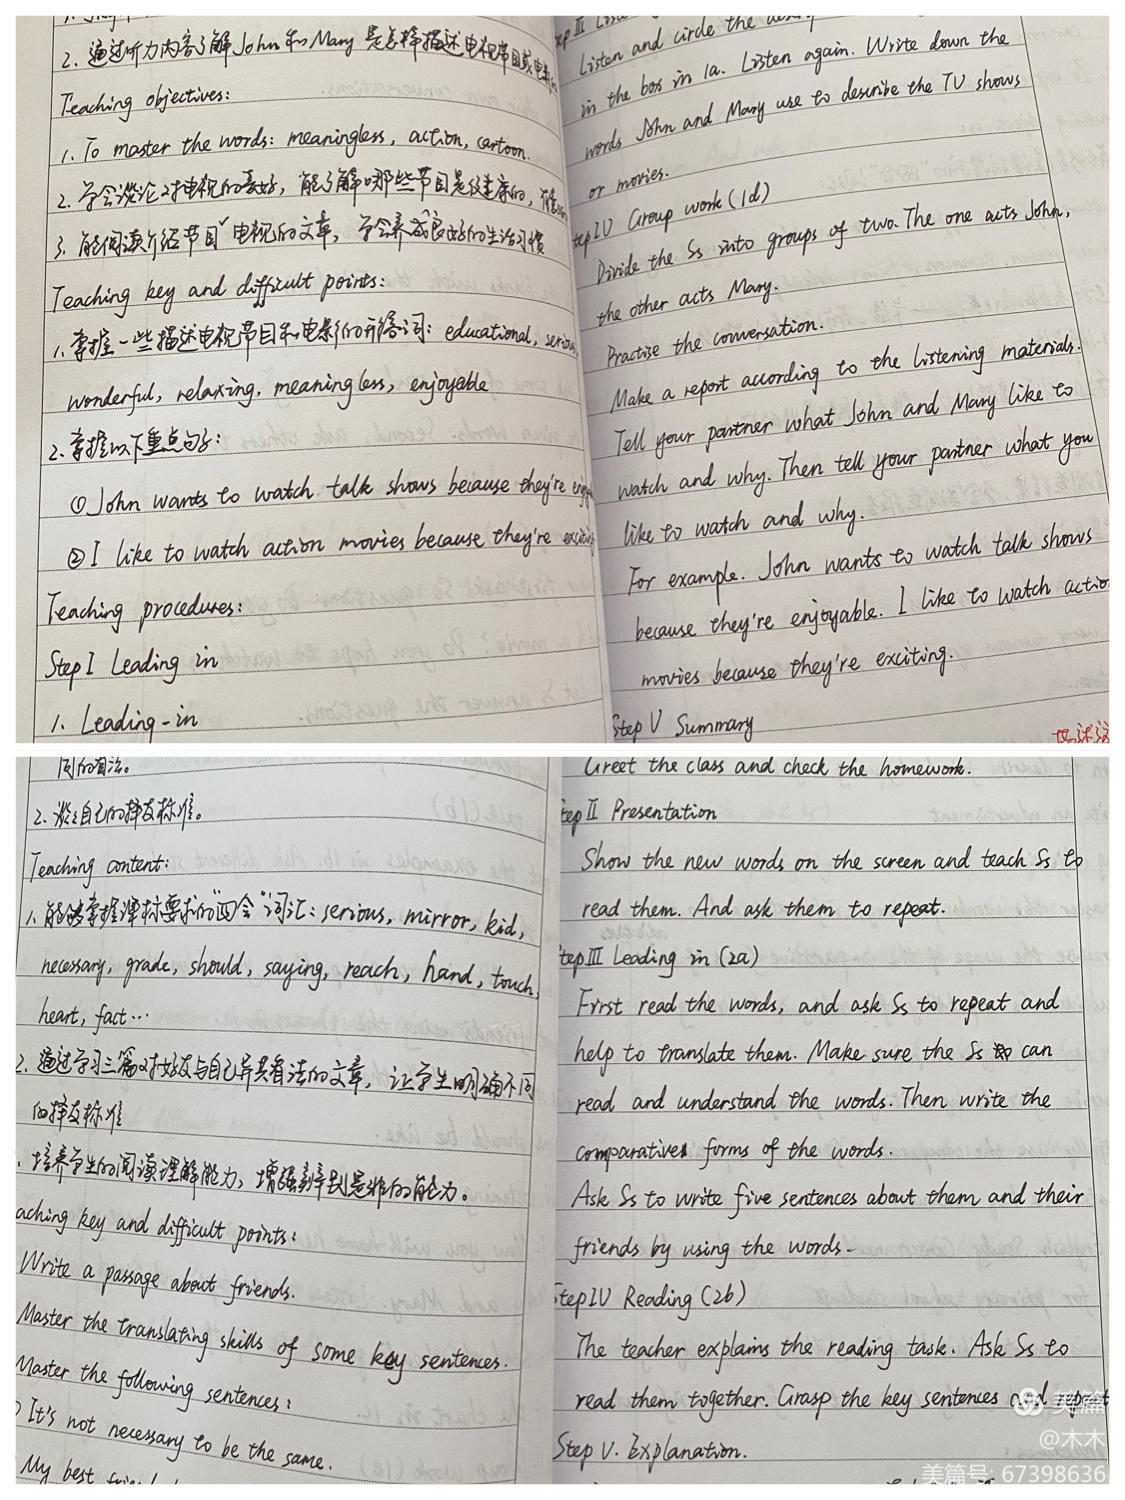 2. 通过听力内容了解John和Mary是怎样描述电视节目或电影
Teaching objectives:
1. To master the words: meaningless, action, cartoon.
2. 学会谈论对电视的喜好，能了解哪些节目是健康的，
3. 能阅读介绍节目电视的文章，学会养成良好的生活习惯
Teaching key and difficult points:
1. 掌握一些描述电视节目和电影的形容词: educational, serious,
wonderful, relaxing, meaningless, enjoyable
2. 掌握以下重点句子:
① John wants to watch talk shows because they're
② I like to watch action movies because they're
Teaching procedures:
Step I Leading in
1. Leading-in
Listen and circle the
in the box in 1a. Listen again. Write down the
words John and Mary use to describe the TV shows
or movies.
tep IV Group work (1d)
Divide the Ss into groups of two. The one acts John,
the other acts Mary.
Practise the conversation.
Make a report according to the listening materials.
Tell your partner what John and Mary like to
watch and why. Then tell your partner what you
like to watch and why.
For example. John wants to watch talk shows
because they're enjoyable. I like to watch action
movies because they're exciting.
Step V Summary
同的看法。
2. 谈论自己的择友标准。
Teaching content:
1. 能够掌握课标要求的“四会”词汇: serious, mirror, kid,
necessary, grade, should, saying, reach, hand, touch,
heart, fact...
2. 通过学习三篇对好友与自己异具看法的文章，让学生明确不同
的择友标准
. 培养学生的阅读理解能力，增强辨别是非的能力。
aching key and difficult points:
Write a passage about friends.
Master the translating skills of some key sentences.
Master the following sentences:
It's not necessary to be the same.
My best
Greet the class and check the homework.
tep II Presentation
Show the new words on the screen and teach Ss to
read them. And ask them to repeat.
tep III Leading in (2a)
First read the words, and ask Ss to repeat and
help to translate them. Make sure the Ss can
read and understand the words. Then write the
comparatives forms of the words.
Ask Ss to write five sentences about them and their
friends by using the words.
Step IV Reading (2b)
The teacher explains the reading task. Ask Ss to
read them together. Grasp the key sentences and repeat
Step V. Explanation.
美篇
@木木
美篇号: 67398636